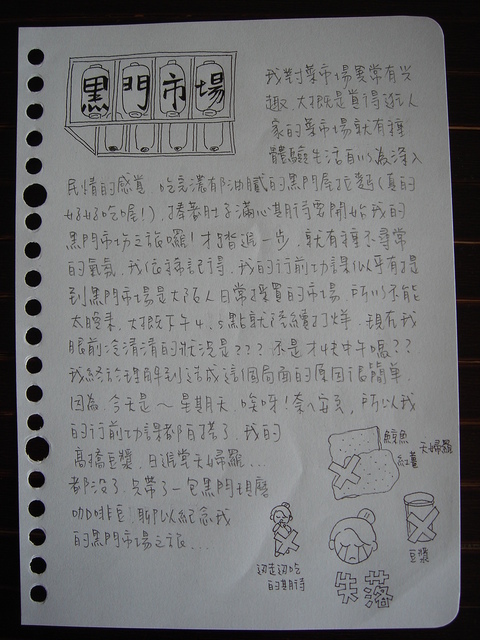 黑門市場
我對菜市場異常有興
趣 大概是覺得逛人
家的菜市場就有種
體驗生活自以為深入
民情的感覺 吃完濃郁油膩的黑門尾拉麵(真的
好好吃喔!), 捧著肚子滿心期待要開始我的
黑門市場之旅囉! 才踏進一步, 就有種不尋常
的氣氛, 我依稀記得, 我的行前功課似乎有提
到黑門市場是大阪人日常採買的市場, 所以不能
太晚來, 大概下午4、5點就陸續打烊, 現在我
眼前冷清清的狀況是??? 不是才4中午嗎??
我終於理解到造成這個局面的原因很簡單
因為, 今天是~星期天, 唉呀! 所以我
的行前功課都白搭了, 我的
高橋豆漿, 日進堂天婦羅...
都沒了, 只帶了一包黑門現磨
咖啡豆, 聊以紀念我
的黑門市場之旅...
鯨魚
紅薑
天婦羅
豆漿
邊走邊吃
的期待
失落